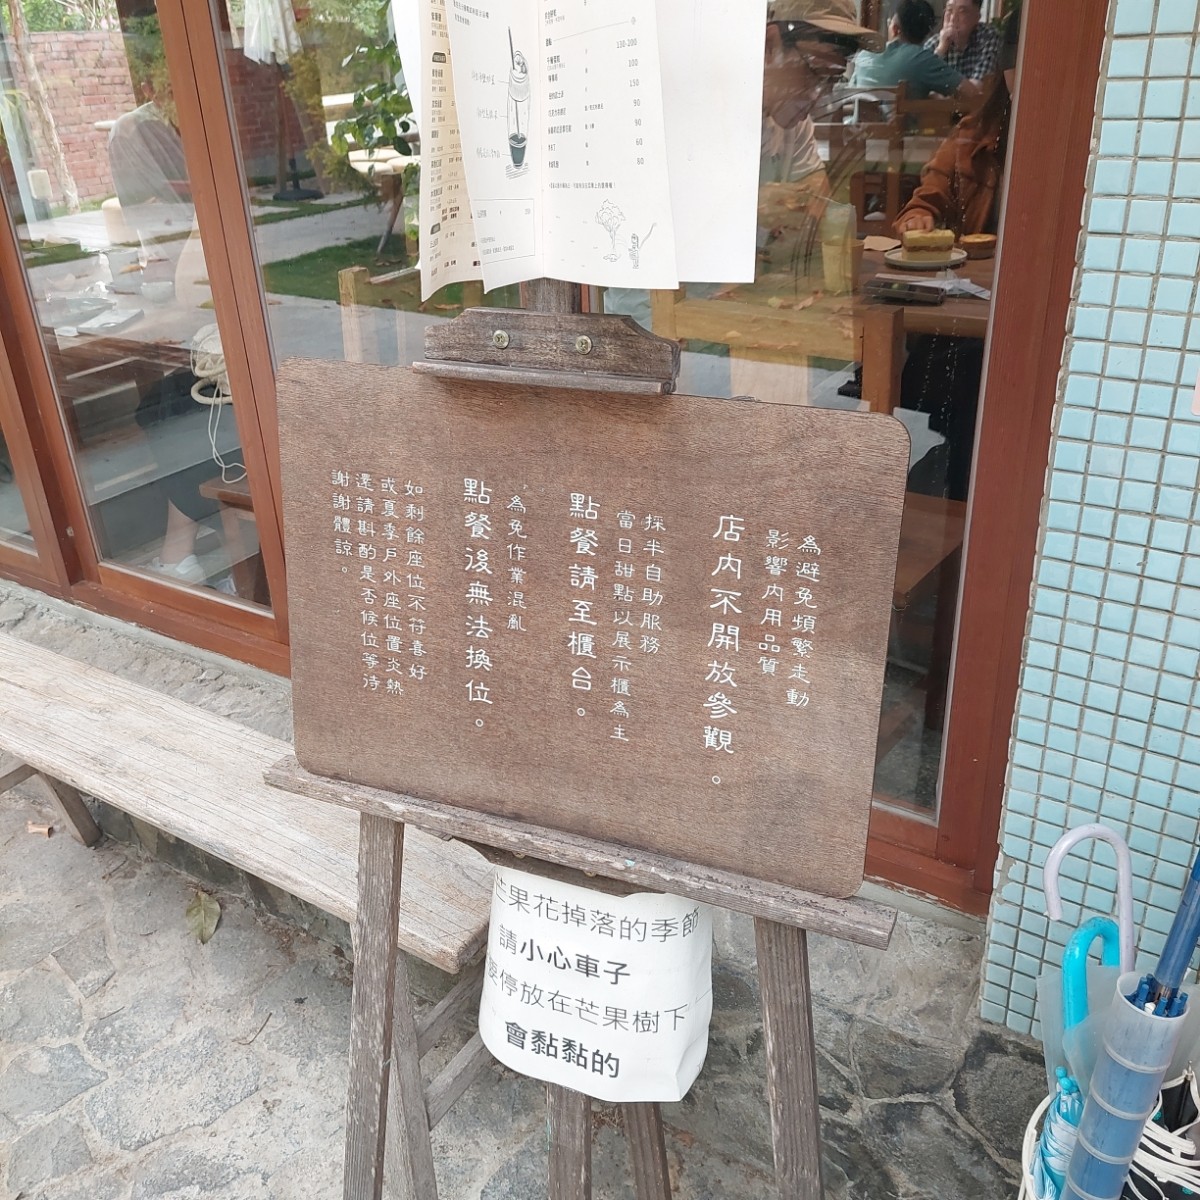 130-200
100
150
90
90
60
60
為避免頻繁走動
影響內用品質
店內不開放參觀。
採半自助服務
當日甜點以展示櫃為主
點餐請至櫃台。
為免作業混亂
點餐後無法換位。
如剩餘座位不符喜好
或夏季戶外座位置炎熱
還請斟酌是否候位等待
謝謝體諒。
芒果花掉落的季節
請小心車子
停放在芒果樹下
會黏黏的